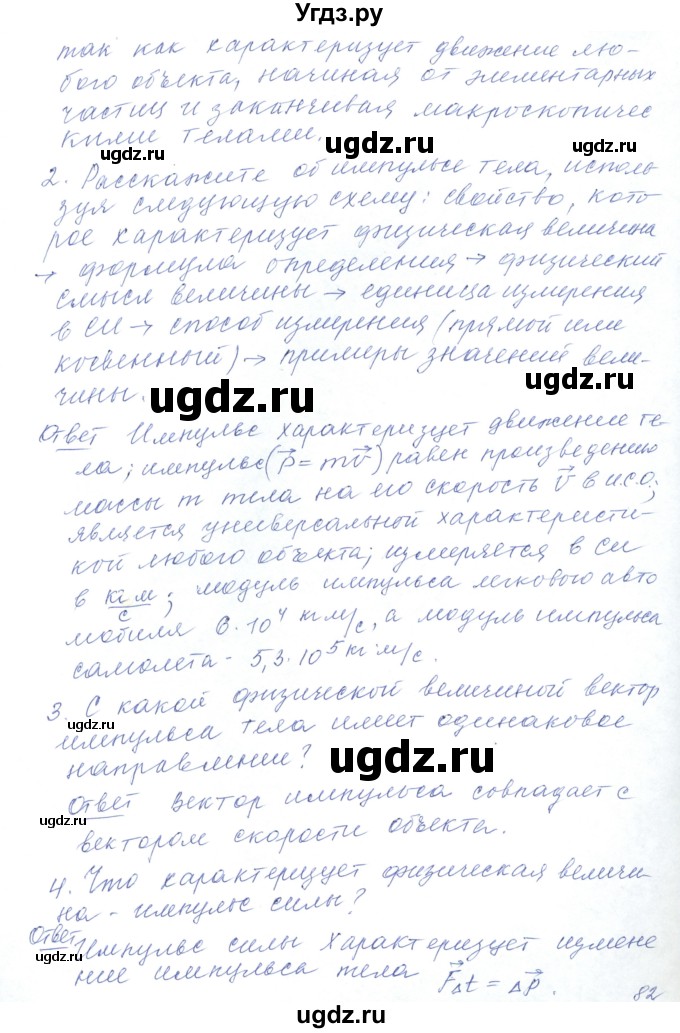 Угдз.ру
так как характеризует движение лю-
бого объекта, начиная от элементарных
частиц и заканчивая макроскопичес
кими телами.
ugdz.ru
ugdz.ru
ugdz.ru
2. Расскажите об импульсе тела, исполь
зуя следующую схему: свойство, кото
рое характеризует физическая величина
→ формула определения → физический
смысл величины → единица измерения
в СИ → способ измерения (прямой или
косвенный) → примеры значений вели-
чины.
ugdz.ru
ugdz.ru
Ответ Импульс характеризует движение те-
ла; импульс (p⃗ = mv⃗) равен произведению
массы m тела на его скорость v⃗ в и.с.о.;
является универсальной характеристи-
кой любого объекта; измеряется в СИ
в кг·м/с; модуль импульса легкового авто
мобиля 6·10⁴ кг·м/с, а модуль импульса
самолета - 5,3·10⁵ кг·м/с.
ugdz.ru
ugdz.ru
3. С какой физической величиной вектор
импульса тела имеет одинаковое
направление?
ugdz.ru
ugdz.ru
Ответ Вектор импульса совпадает с
вектором скорости объекта.
ugdz.ru
4. Что характеризует физическая величи-
на - импульс силы?
ugdz.ru
Ответ Импульс силы характеризует измене
ние импульса тела F⃗Δt = Δp⃗.
ugdz.ru
ugdz.ru
82